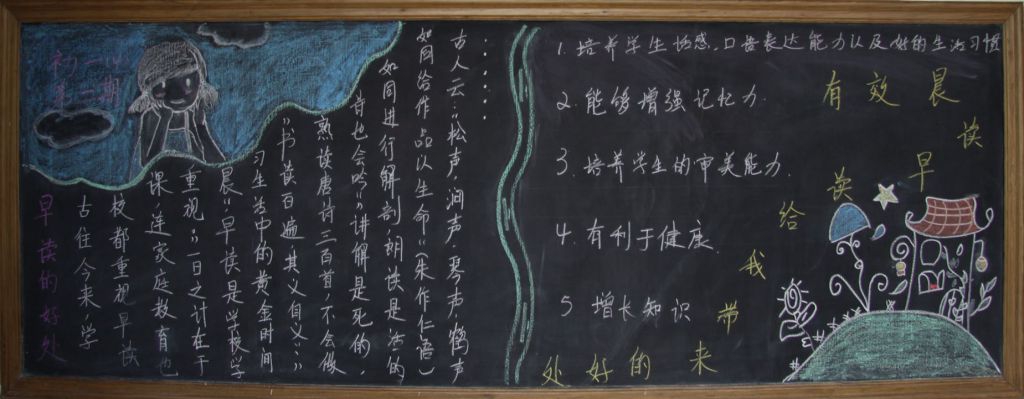 初一
第一期
早读的好处
古往今来，学
校都重视早读
课，连家庭教育也
重视。“一日之计在于
晨”早读是学校学
习生活中的黄金时间
“书读百遍其义自见”
熟读唐诗三百首，不会做
诗也会吟”讲解是死的，
如同进行解剖，朗读是活的
如同给作品以生命”（朱作仁语）
古人云：“松声，涧声，琴声，鹤声
……
1. 培养学生语感，口语表达能力以及好的生活习惯
2. 能够增强记忆力.
3. 培养学生的审美能力.
4. 有利于健康.
5 增长知识
有效晨读
早读给我带来的好处